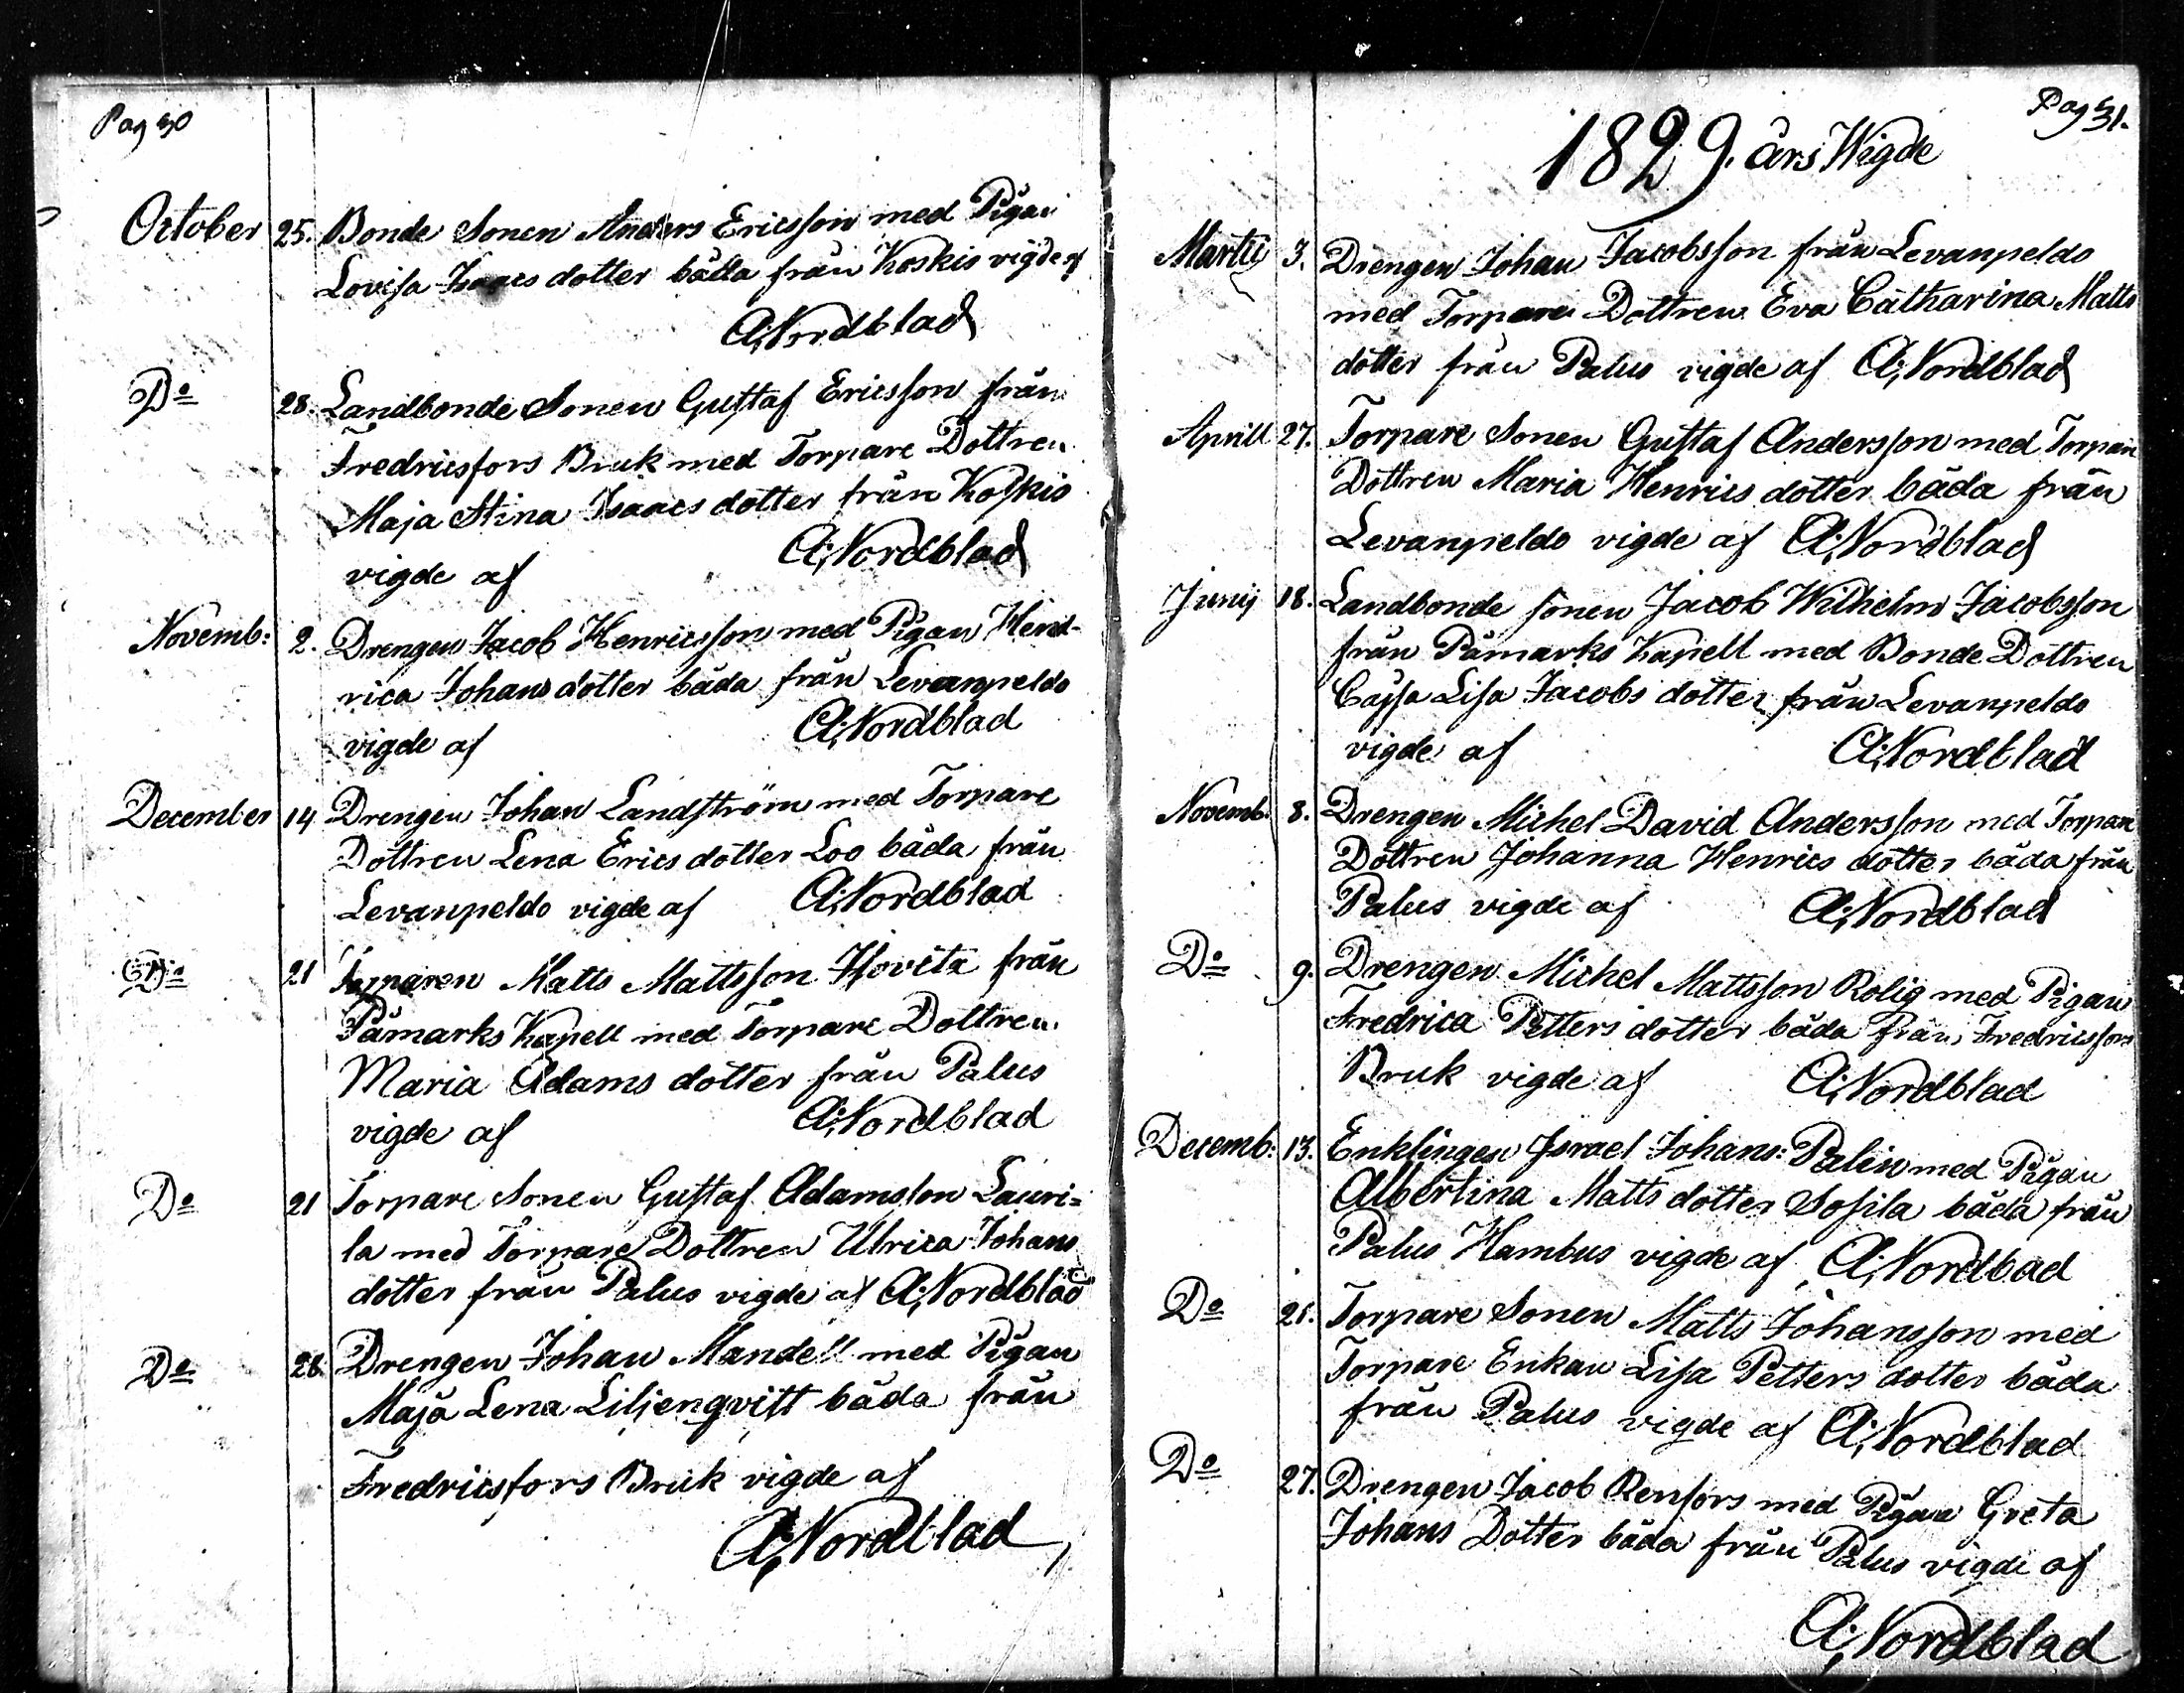 Pag 30
October 25. Bonde Sonen Anders Ericsson med Pigan
Lovisa Isaacs dotter båda från Koskis vigde af
A; Nordblad
Do 28. Landbonde Sonen Gustaf Ericsson från
Fredricsfors Bruk med Torpare Dottren
Maja Stina Isaacs dotter från Koskis
vigde af A; Nordblad
Novemb: 2. Drengen Jacob Henricsson med Pigan Hend-
rica Johans dotter båda från Levanpeldo
vigde af A; Nordblad
December 14 Drengen Johan Landström med Torpare
Dottren Lena Erics dotter Loo båda från
Levanpeldo vigde af A; Nordblad
Do 21 Torparen Matts Mattsson Hovita från
Påmarks Kapell med Torpare Dottren
Maria Adams dotter från Palus
vigde af A; Nordblad
Do 21 Torpare Sonen Gustaf Adamsson Lauri=
la med Torpare Dottren Ulrica Johans
dotter från Palus vigde af A; Nordblad
Do 28. Drengen Johan Mandell med Pigan
Maja Lena Liljenqvist båda från
Fredricsfors Bruk vigde af
A; Nordblad
Pag 31.
1829. års Wigde
Martii 3. Drengen Johan Jacobsson från Levanpeldo
med Torpare Dottren Eva Catharina Matts
dotter från Palus vigde af A; Nordblad
Aprill 27. Torpare Sonen Gustaf Andersson med Torpare
Dottren Maria Henrics dotter båda från
Levanpeldo vigde af A; Nordblad
Junij 18. Landbonde sonen Jacob Wilhelm Jacobsson
från Påmarks Kapell med Bonde Dottren
Cajsa Lisa Jacobs dotter från Levanpeldo
vigde af A; Nordblad
Novemb: 8. Drengen Michel David Andersson med Torpare
Dottren Johanna Henrics dotter båda från
Palus vigde af A; Nordblad
Do 9. Drengen Michel Mattsson Rolig med Pigan
Fredrica Petters dotter båda från Fredricsfors
Bruk vigde af A; Nordblad
Decemb: 13. Enklingen Israel Johans: Palin med Pigan
Albertina Matts dotter Sosila båda från
Palus Hambus vigde af A; Nordbad
Do 21. Torpare Sonen Matts Johansson med
Torpare Enkan Lisa Petters dotter båda
från Palus vigde af A; Nordblad
Do 27. Drengen Jacob Renfors med Pigan Greta
Johans Dotter båda från Palus vigde af
A; Nordblad